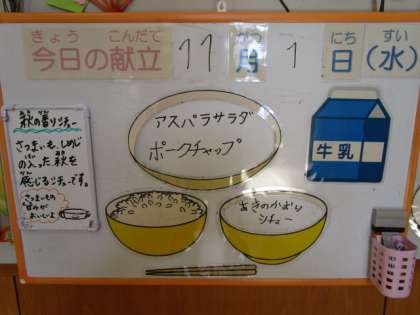 きょう こんだて
今日の献立
11 がつ 月 1 にち 日 すい (水)
アスパラサラダ
ポークチャップ
牛乳
秋の香りシチュー
さつまいも、しめじ
の入った秋を
感じるシチューです。
さつまいもの
甘みが
おいしいよ
あきのかおり
シチュー